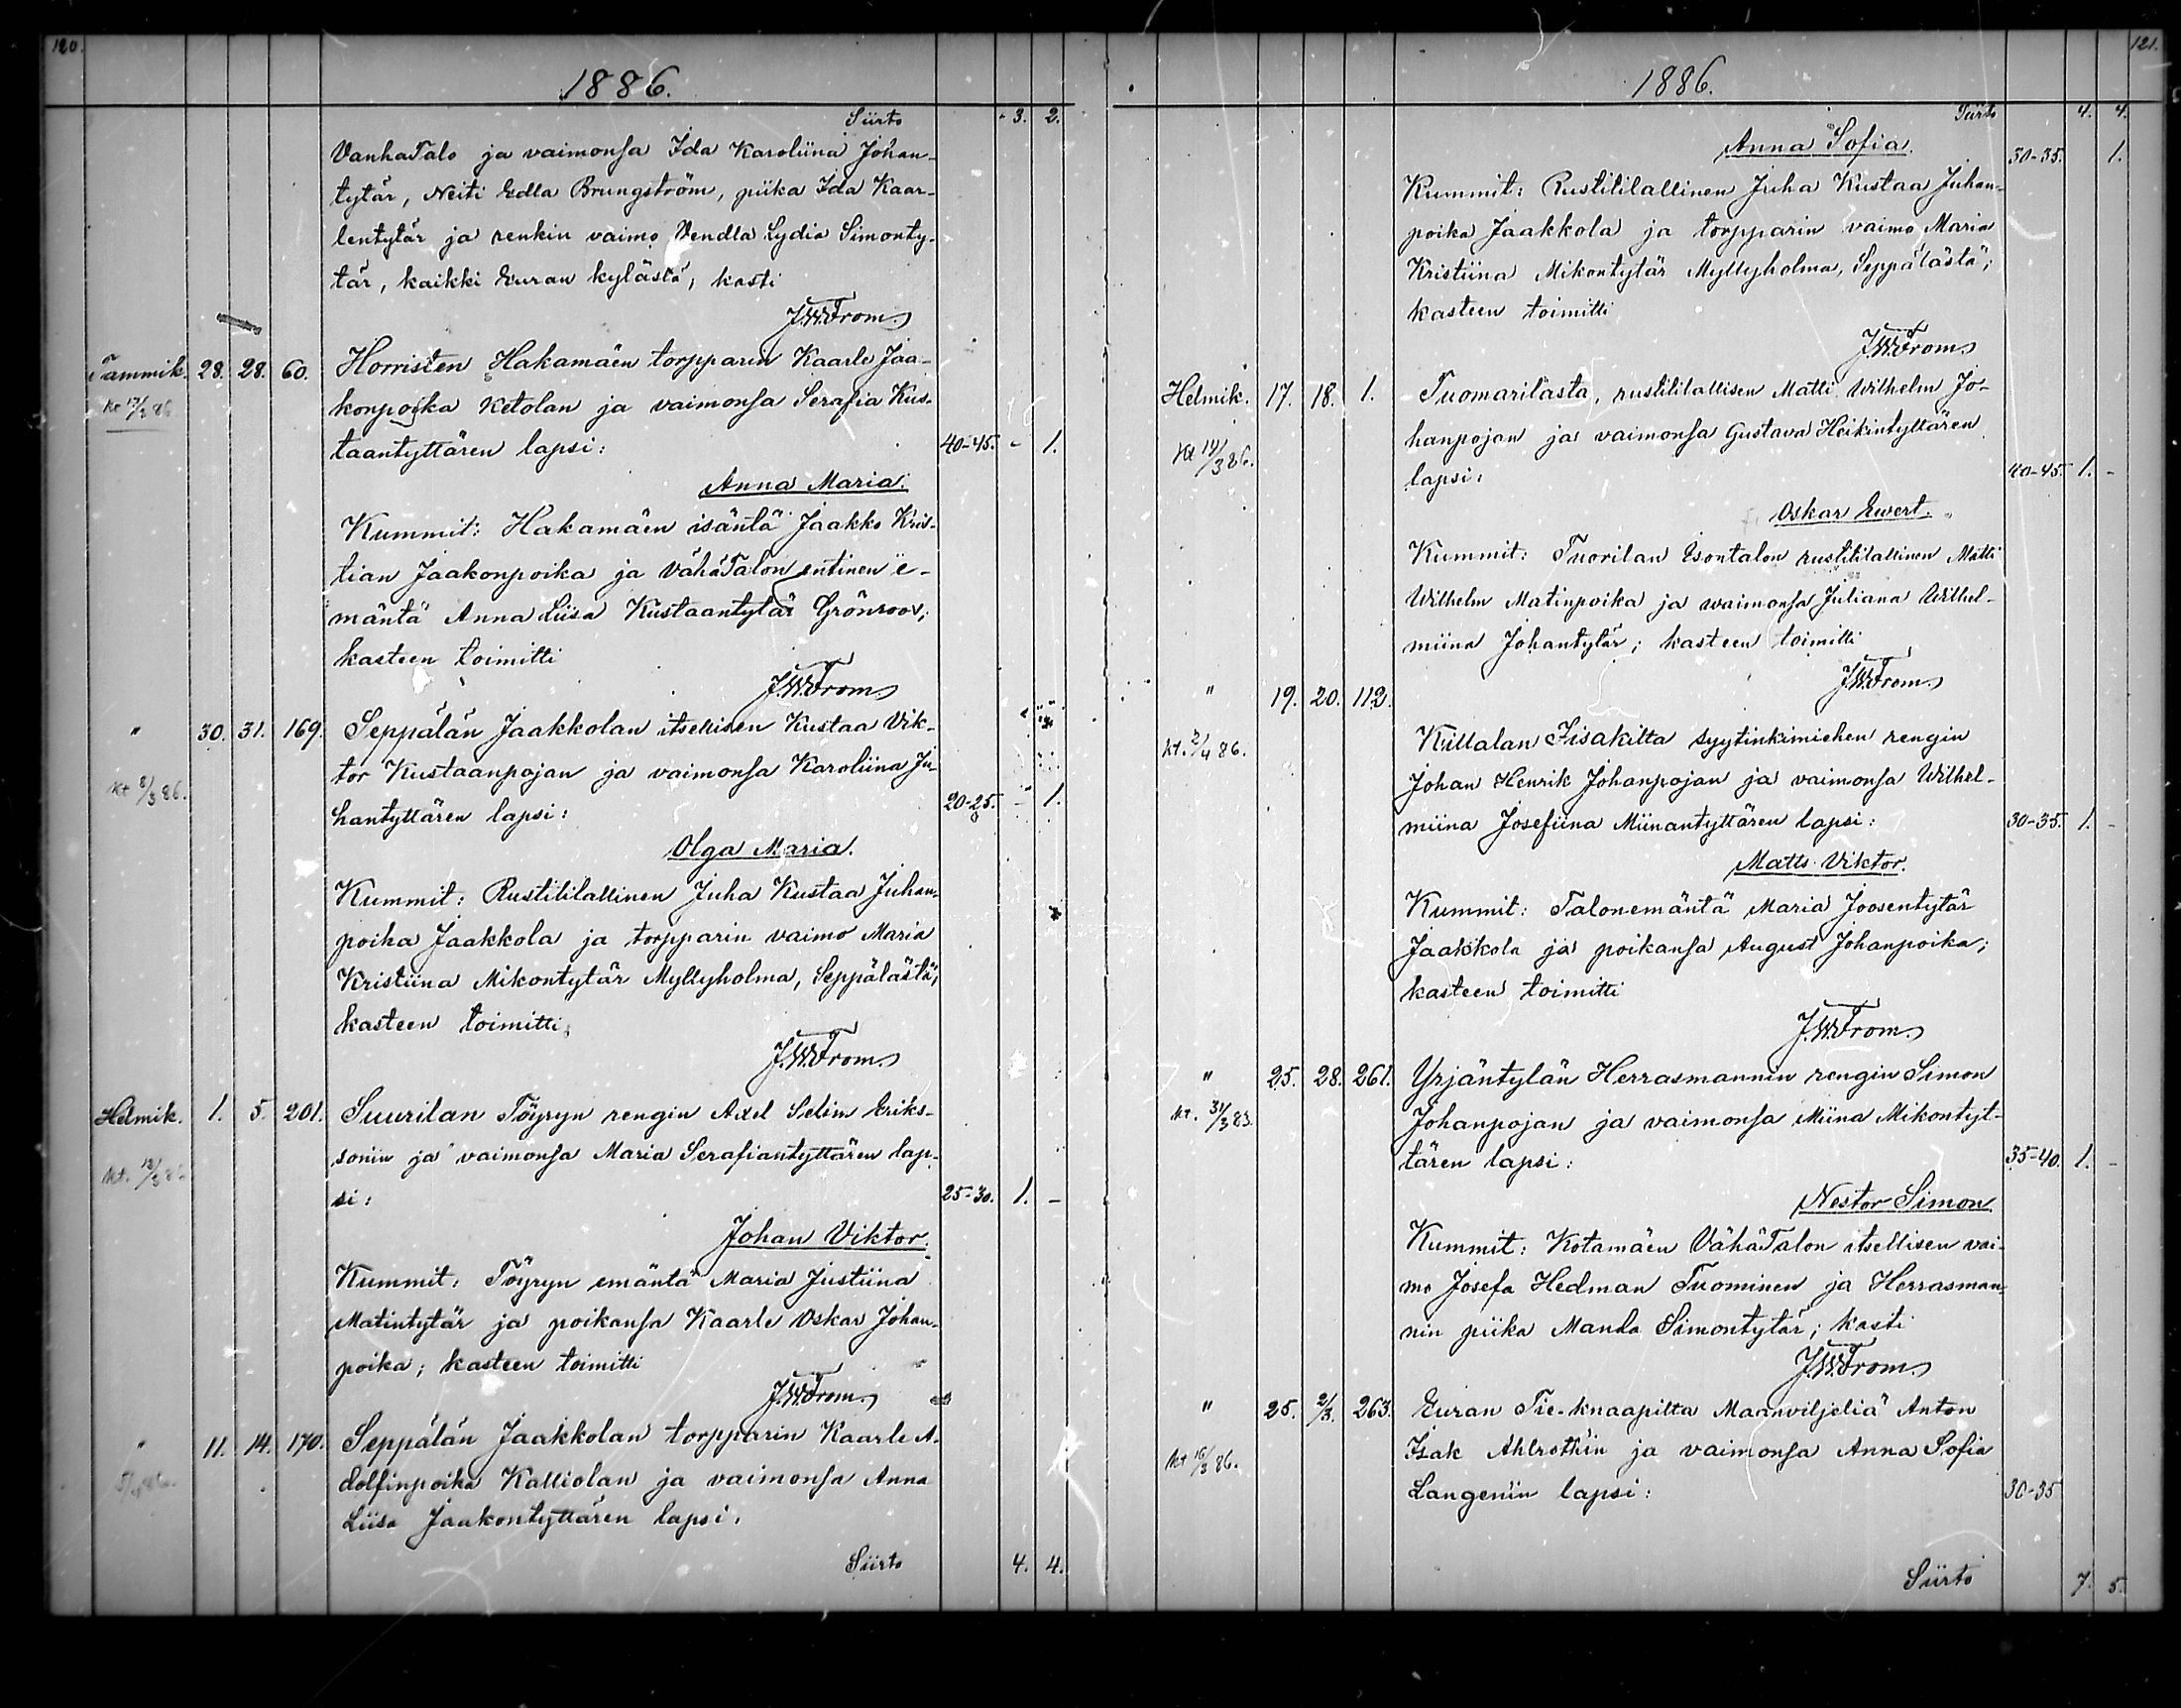 120.
1886.
Siirto 3. 2.
VanhaTalo ja vaimonsa Ida Karoliina Johan-
tytär, Neiti Edla Brungström, piika Ida Kaar-
lentytär ja renkin vaimo Vendla Lydia Simonty-
tär, kaikki Euran kylästä; kasti
J.W.From.
Tammik. 28. 28. 60. Horristen Hakamäen torpparin Kaarle Jaa-
konpoika Ketolan ja vaimonsa Serafia Kus-
taantyttären lapsi: 40-45. - 1.
Anna Maria.
Kummit: Hakamäen isäntä Jaakko Kris-
tian Jaakonpoika ja VähäTalon entinen e-
mäntä Anna Liisa Kustaantytär Grönroos;
kasteen toimitti
J.W.From.
" 30. 31. 169. Seppälän Jaakkolan itsellisen Kustaa Vik-
tor Kustaanpojan ja vaimonsa Karoliina Ju-
Kt 8/3 86.
hantyttären lapsi: 20-25. - 1.
Olga Maria.
Kummit: Rustitilallinen Juha Kustaa Juhan-
poika Jaakkola ja torpparin vaimo Maria
Kristiina Mikontytär Myllyholma, Seppälästä;
kasteen toimitti
J.W.From.
Helmik. 1. 5. 201. Suurilan Töyryn rengin Axel Selim Eriks-
sonin ja vaimonsa Maria Serafiantyttären lap-
si: 25-30. 1. -
Johan Viktor.
Kummit: Töyryn emäntä Maria Justiina
Matintytär ja poikansa Kaarle Oskar Johan-
poika; kasteen toimitti
J.W.From.
" 11. 14. 170. Seppälän Jaakkolan torpparin Kaarle A-
dolfinpoika Kalliolan ja vaimonsa Anna
Liisa Jaakontyttären lapsi:
Siirto 4. 4.
121.
1886.
Siirto 4. 4.
Anna Sofia. 30-35. 1.
Kummit: Rustitilallinen Juha Kustaa Juhan-
poika Jaakkola ja torpparin vaimo Maria
Kristiina Mikontytär Myllyholma, Seppälästä;
kasteen toimitti
J.W.From.
Helmik. 17. 18. 1. Tuomarilasta, rustitilallisen Matti Wilhelm Jo-
hanpojan ja vaimonsa Gustava Heikintyttären
Kt 14/3 86.
lapsi: 40-45. 1. -
Oskar Ewert.
Kummit: Tuorilan Isontalon rustitilallinen Matti
Wilhelm Matinpoika ja waimonsa Juliana Wilhel-
miina Johantytär; kasteen toimitti
J.W.From.
" 19. 20. 112.
Kt. 2/4 86.
Killalan Iisakilta syytinkimiehen rengin
Johan Henrik Johanpojan ja vaimonsa Wilhel-
miina Josefiina Miinantyttären lapsi: 30-35. 1. -
Matts Viktor.
Kummit: Talonemäntä Maria Joosentytär
Jaakkola ja poikansa August Johanpoika;
kasteen toimitti
J.W.From.
" 25. 28. 261. Yrjäntylän Herrasmannin rengin Simon
Johanpojan ja vaimonsa Miina Mikontyt-
tären lapsi: 35-40. 1. -
Nestor Simon
Kummit: Kotamäen VähäTalon itsellisen vai-
mo Josefa Hedman Tuominen ja Herrasman-
nin piika Manda Simontytär; kasti
J.W.From.
" 25. 2/3. 263. Euran Tie-knaapilta Maanviljeliä Anton
Isak Ahlrothin ja vaimonsa Anna Sofia
Kt 16/3 86.
Langenin lapsi: 30-35
Siirto 7. 5.